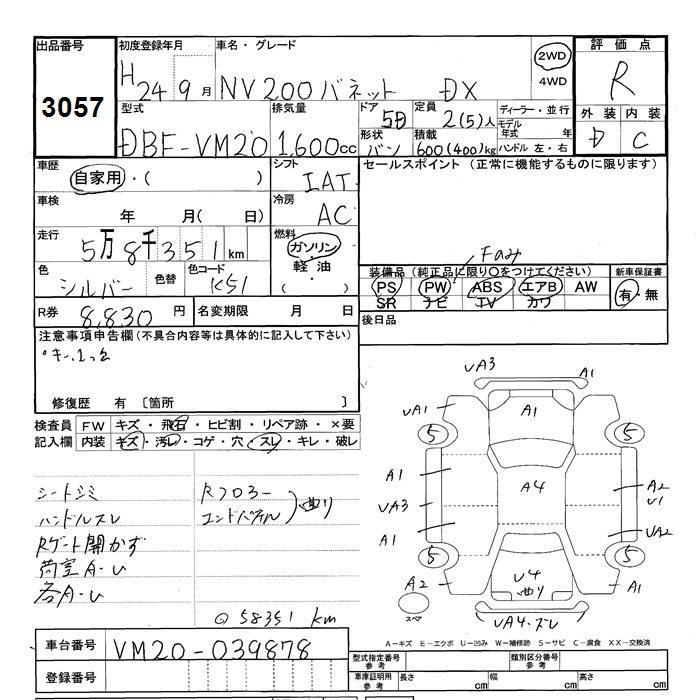 出品番号 3057
初度登録年月 H24 9月
車名・グレード NV200バネット DX
2WD 4WD
評価点 R
外装 内装
D C
型式 DBF-VM20
排気量 1,600cc
ドア 5D
形状 バン
定員 2(5)人
積載 600(400)kg
ディーラー・並行
モデル年式 年
ハンドル 左・右
車歴 自家用・( )
シフト IAT
セールスポイント (正常に機能するものに限ります)
車検 年 月( 日)
冷房 AC
走行 5万8千351km
燃料 ガソリン・軽油・( )
色 シルバー 色替 色コード K51
装備品 (純正品に限り○をつけてください)
PS PW ABS エアB AW
SR ナビ TV カワ
新車保証書
有・無
R券 8,830円 名変期限 月 日
後日品
注意事項申告欄 (不具合内容等は具体的に記入して下さい)
修復歴 有 〔箇所 〕
検査員記入欄
FW キズ・飛石・ヒビ割・リペア跡・×要
内装 キズ・汚レ・コゲ・穴・スレ・キレ・破レ
シートシミ
ハンドルスレ
Rゲート開かず
荷室A-U
各A-U
Rフロアー
エンドパネル 曲り
58351 km
UA3 A1
UA1 A1
5 5
A1 A4 A2 U1
UA3
A1 UA2
5 5
A2 U4 曲り A1
スペア UA4・スレ
A-キズ E-エクボ U-凹み W-補修跡 S-サビ C-腐食 XX-交換済
車台番号 VM20-039878
登録番号
型式指定番号 参考
類別区分番号 参考
車庫証明用 参考 長さ cm 幅 cm 高さ cm